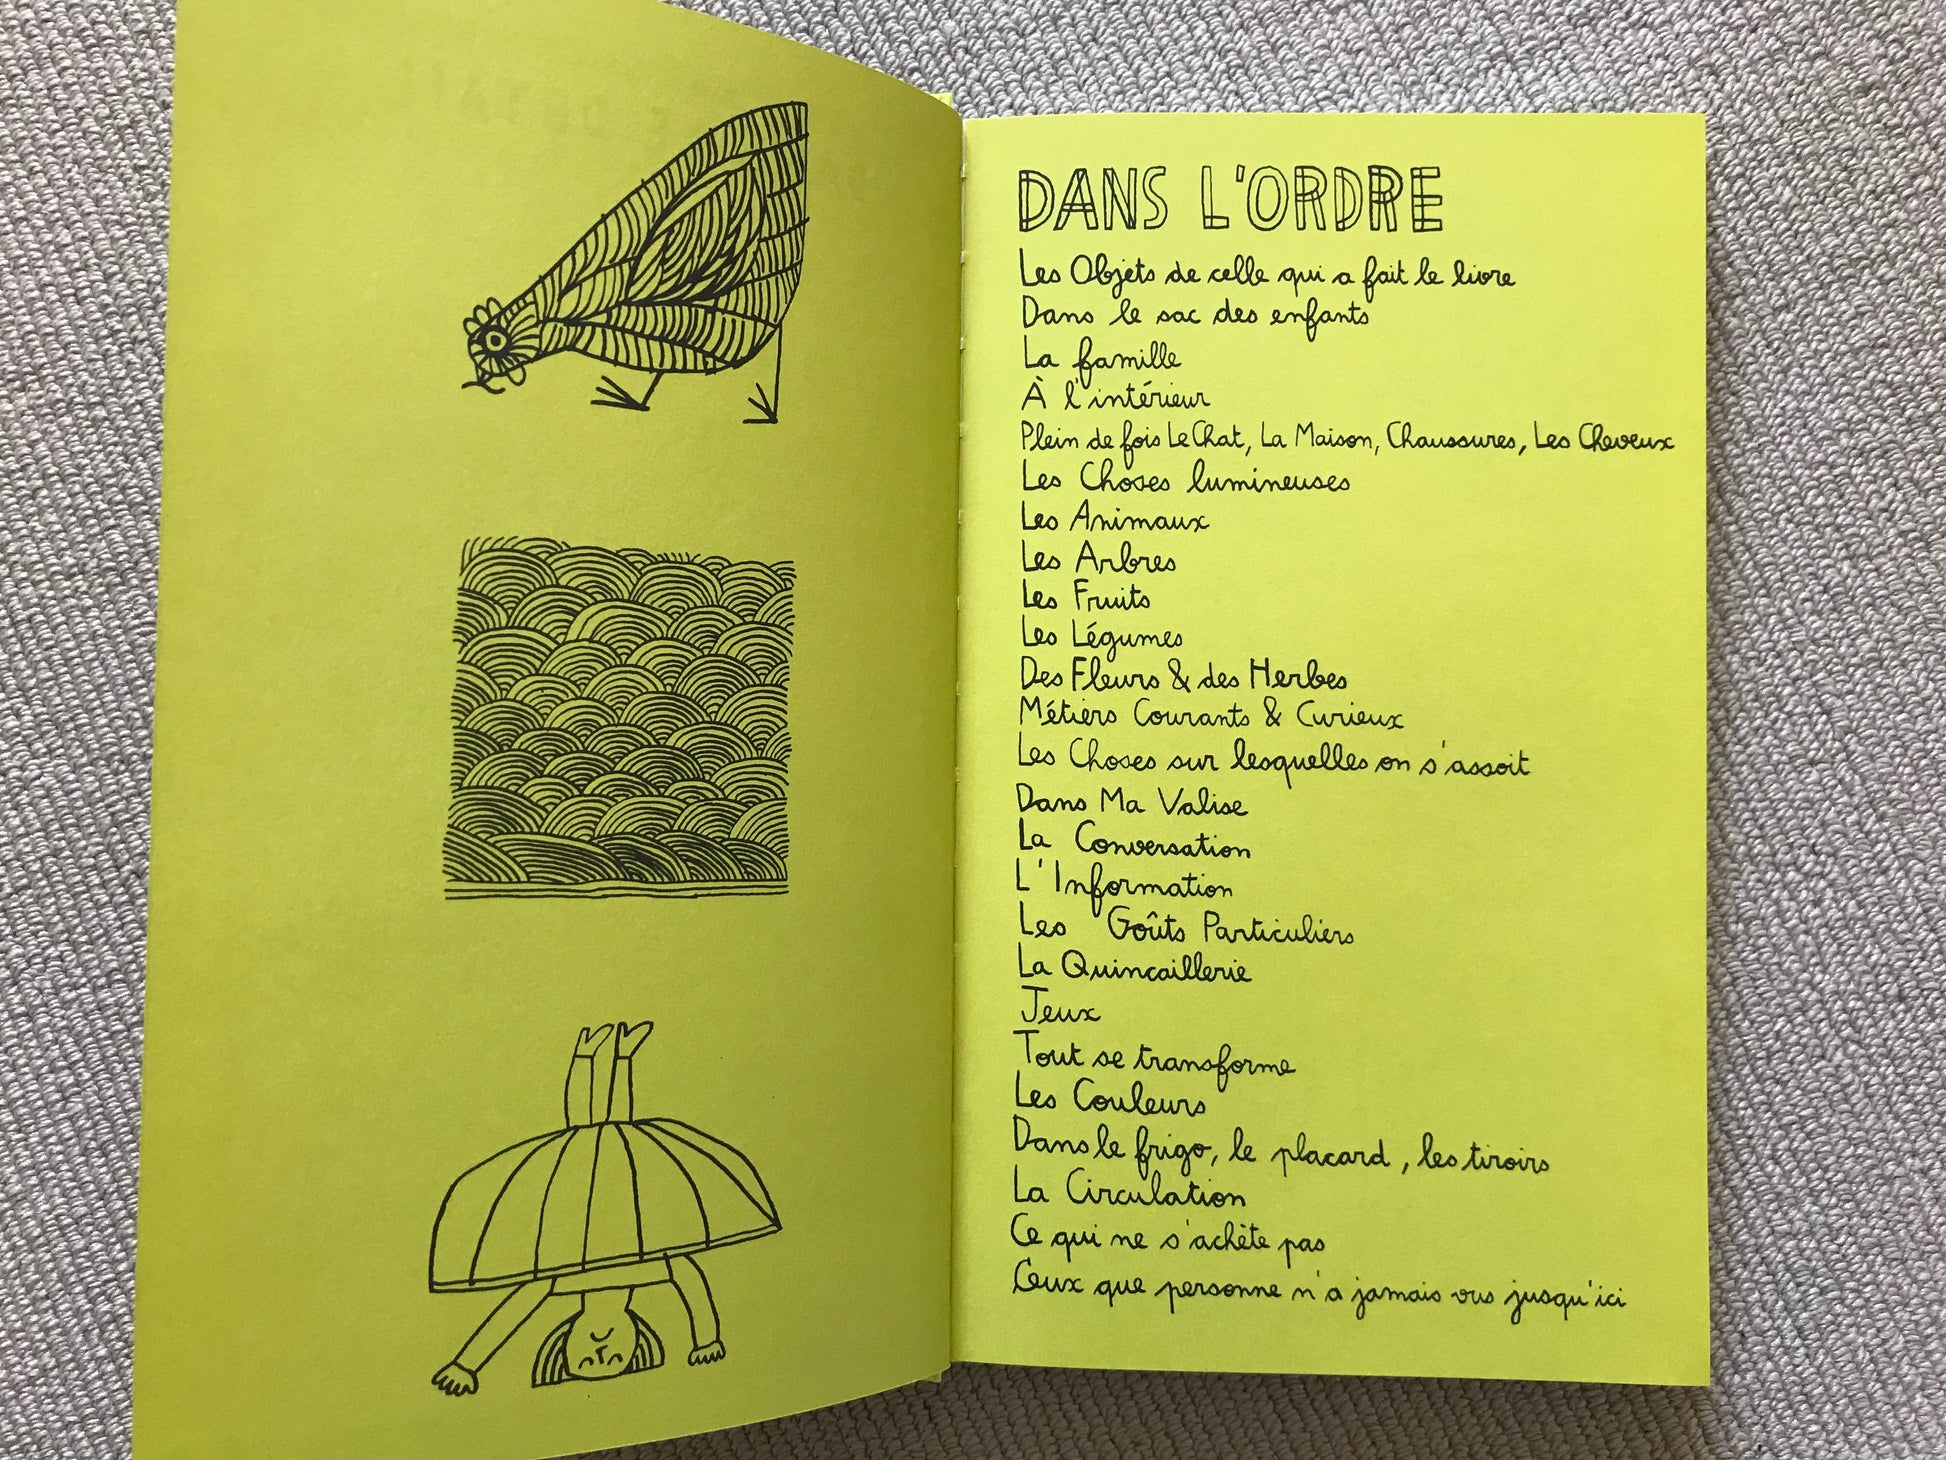 DANS L'ORDRE
Les Objets de celle qui a fait le livre
Dans le sac des enfants
La famille
À l'intérieur
Plein de fois Le Chat, La Maison, Chaussures, Les Cheveux
Les Choses lumineuses
Les Animaux
Les Arbres
Les Fruits
Les Légumes
Des Fleurs & des Herbes
Métiers Courants & Curieux
Les Choses sur lesquelles on s'assoit
Dans Ma Valise
La Conversation
L'Information
Les Goûts Particuliers
La Quincaillerie
Jeux
Tout se transforme
Les Couleurs
Dans le frigo, le placard, les tiroirs
La Circulation
Ce qui ne s'achète pas
Ceux que personne n'a jamais vus jusqu'ici